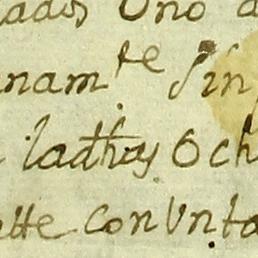 ados Uno a
nam^te Sin
ladhas Och
tte con Unta